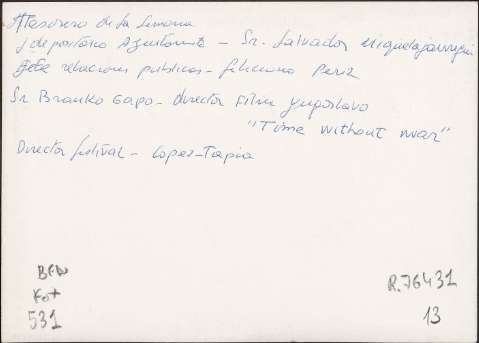 Atesorero de la Semana
y depositario Ayuntamit - Sr. Salvador
Jefe relaciones publicas - feliciano Periz
Sr Branko Gapo - director Film yugoslavo
"Time without war"
Director festival - Lopez-Tapia
BEN
Fot
531
R.76431
13